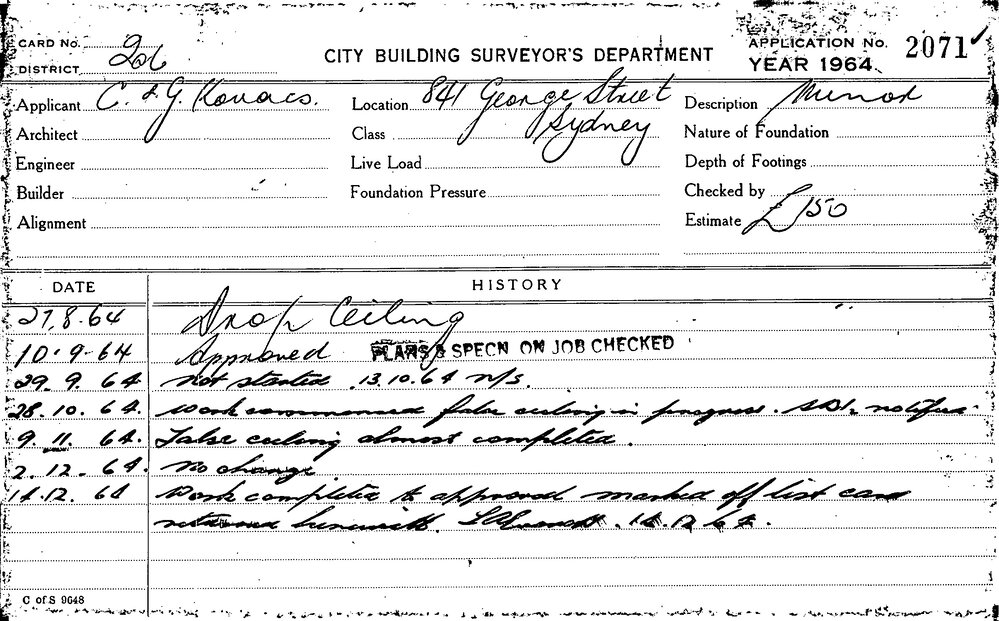 CARD No.
DISTRICT 2ol
CITY BUILDING SURVEYOR'S DEPARTMENT
APPLICATION No. 2071 ✓
YEAR 1964.
Applicant C. & G. Kovacs.
Location 841 George Street
Sydney
Description Minor
Architect
Class
Nature of Foundation
Engineer
Live Load
Depth of Footings
Builder
Foundation Pressure
Checked by
Alignment
Estimate £150
DATE
HISTORY
27.8.64 Drop Ceiling
10.9.64 Approved PLANS & SPECN ON JOB CHECKED
29.9.64 Not started 13.10.64 n/s.
28.10.64. Work commenced false ceiling in progress.
9.11.64. False ceiling almost completed.
2.12.64. No change
14.12.64 Work completed to approved marked off list card
returned herewith. 14.12.64.
C of S 9648